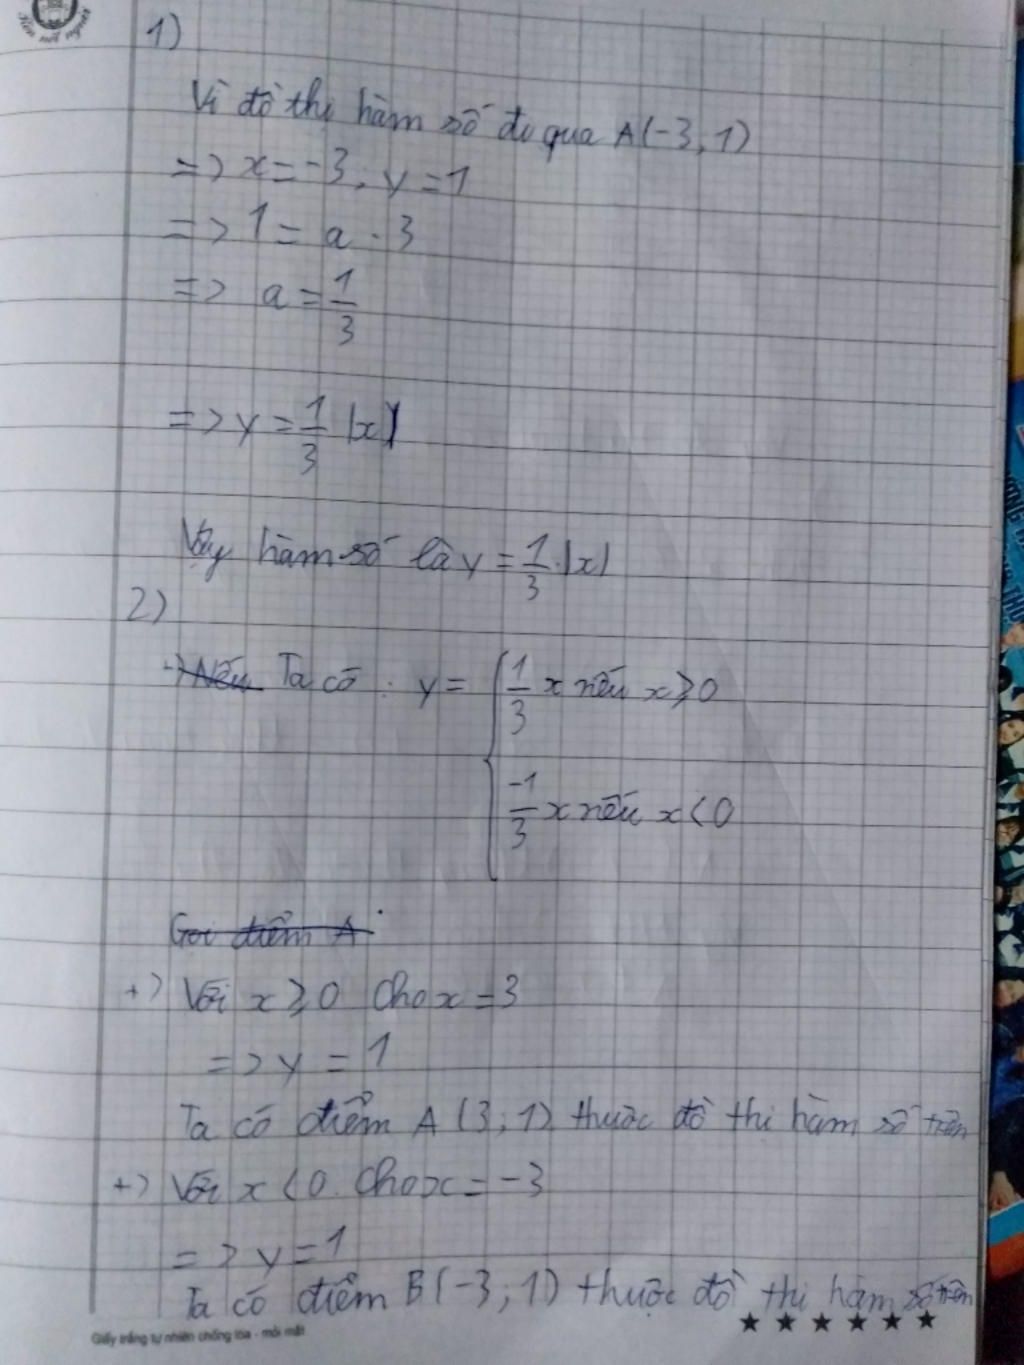 Nền nết người
1)
Vì đồ thị hàm số đi qua A(-3, 1)
=> x = -3; y = 1
=> 1 = a . 3
=> a = 1/3
=> y = 1/3 |x|
Vậy hàm số là y = 1/3 . |x|
2)
Nếu Ta có : y = { 1/3 x nếu x ⩾ 0
-1/3 x nếu x < 0
Gọi điểm A
+) Với x ⩾ 0 Cho x = 3
=> y = 1
Ta có điểm A (3; 1) thuộc đồ thị hàm số trên
+) Với x < 0. Cho x = -3
=> y = 1
Ta có điểm B(-3; 1) thuộc đồ thị hàm số trên
Giấy trắng tự nhiên chống lóa - mỏi mắt